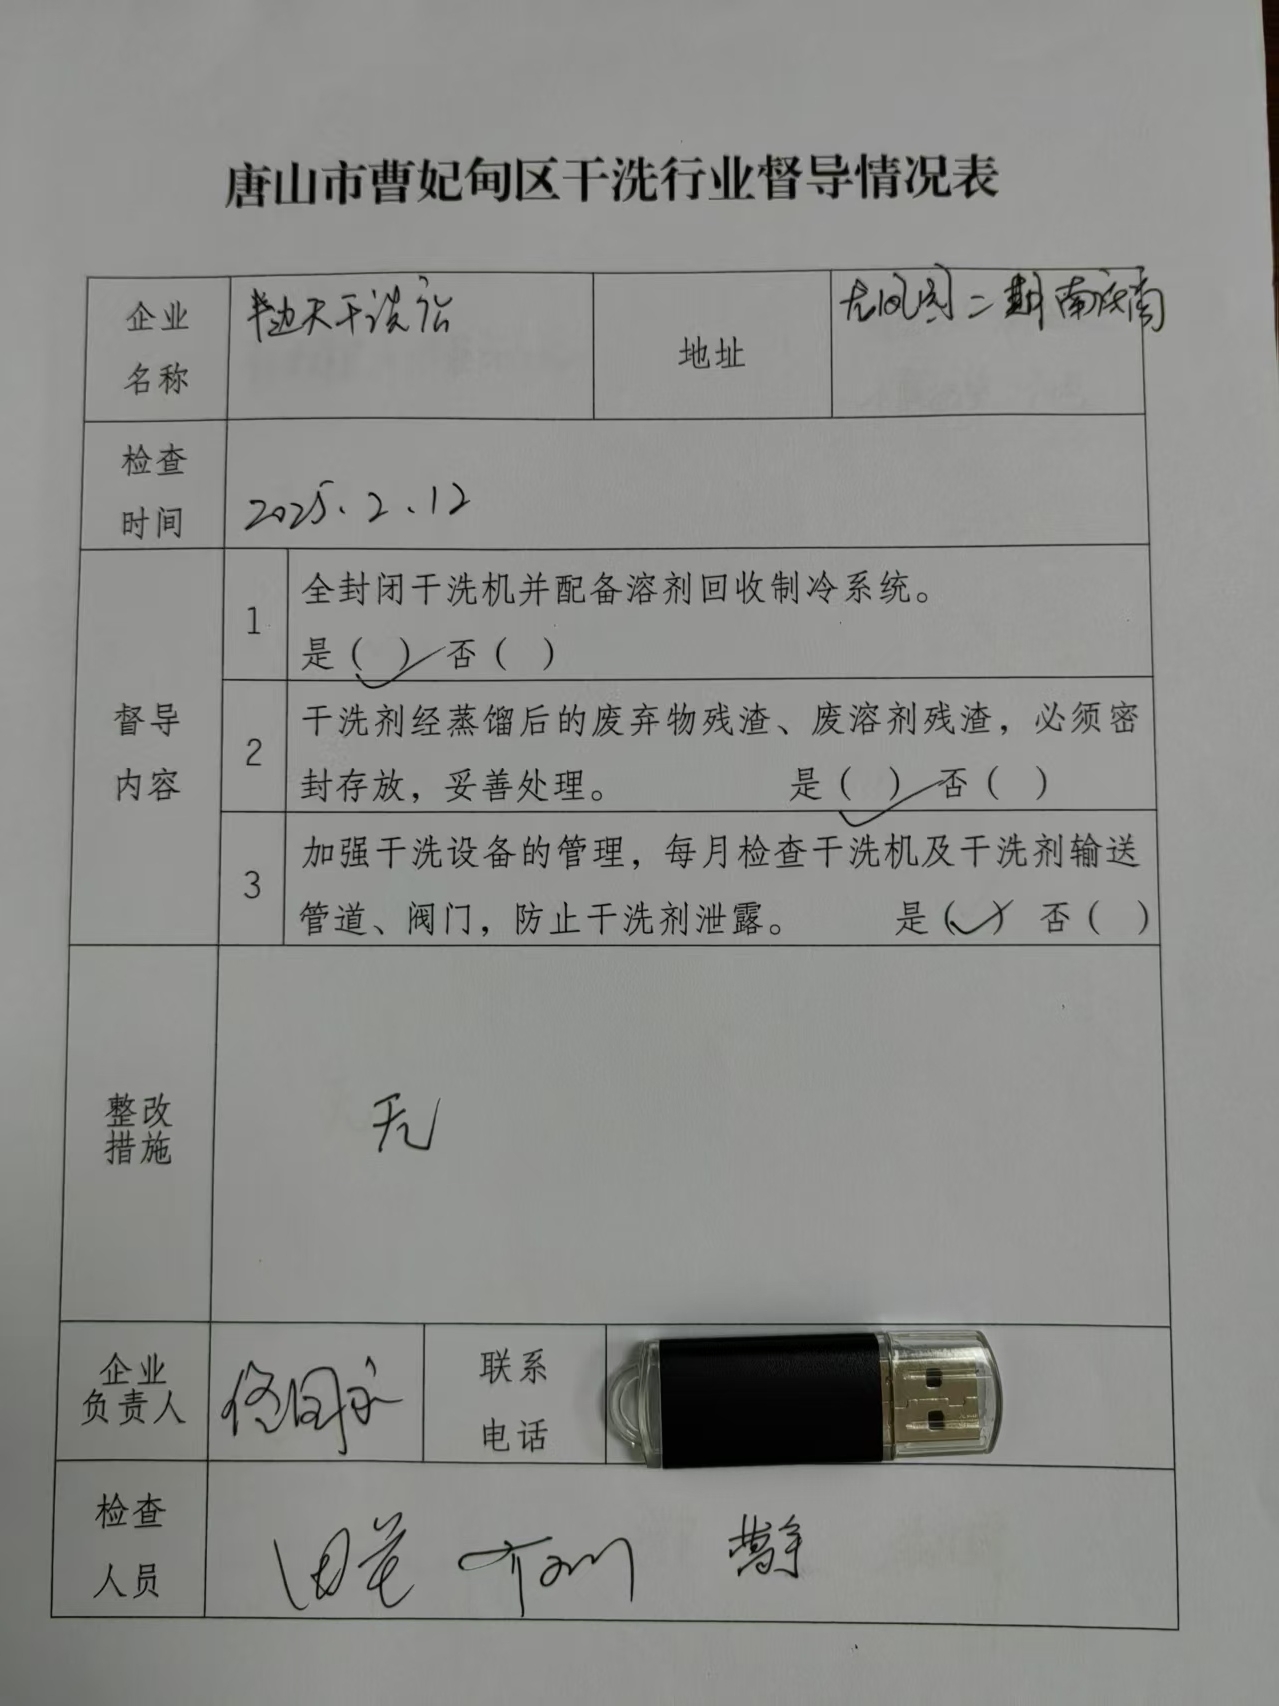 唐山市曹妃甸区干洗行业督导情况表
企业
名称
半边天干洗店
地址
二期南底商
检查
时间
2025.2.12
督导
内容
1
全封闭干洗机并配备溶剂回收制冷系统。
是( )✓ 否( )
2
干洗剂经蒸馏后的废弃物残渣、废溶剂残渣，必须密
封存放，妥善处理。 是( )✓ 否( )
3
加强干洗设备的管理，每月检查干洗机及干洗剂输送
管道、阀门，防止干洗剂泄露。 是(✓) 否( )
整改
措施
无
企业
负责人
联系
电话
检查
人员